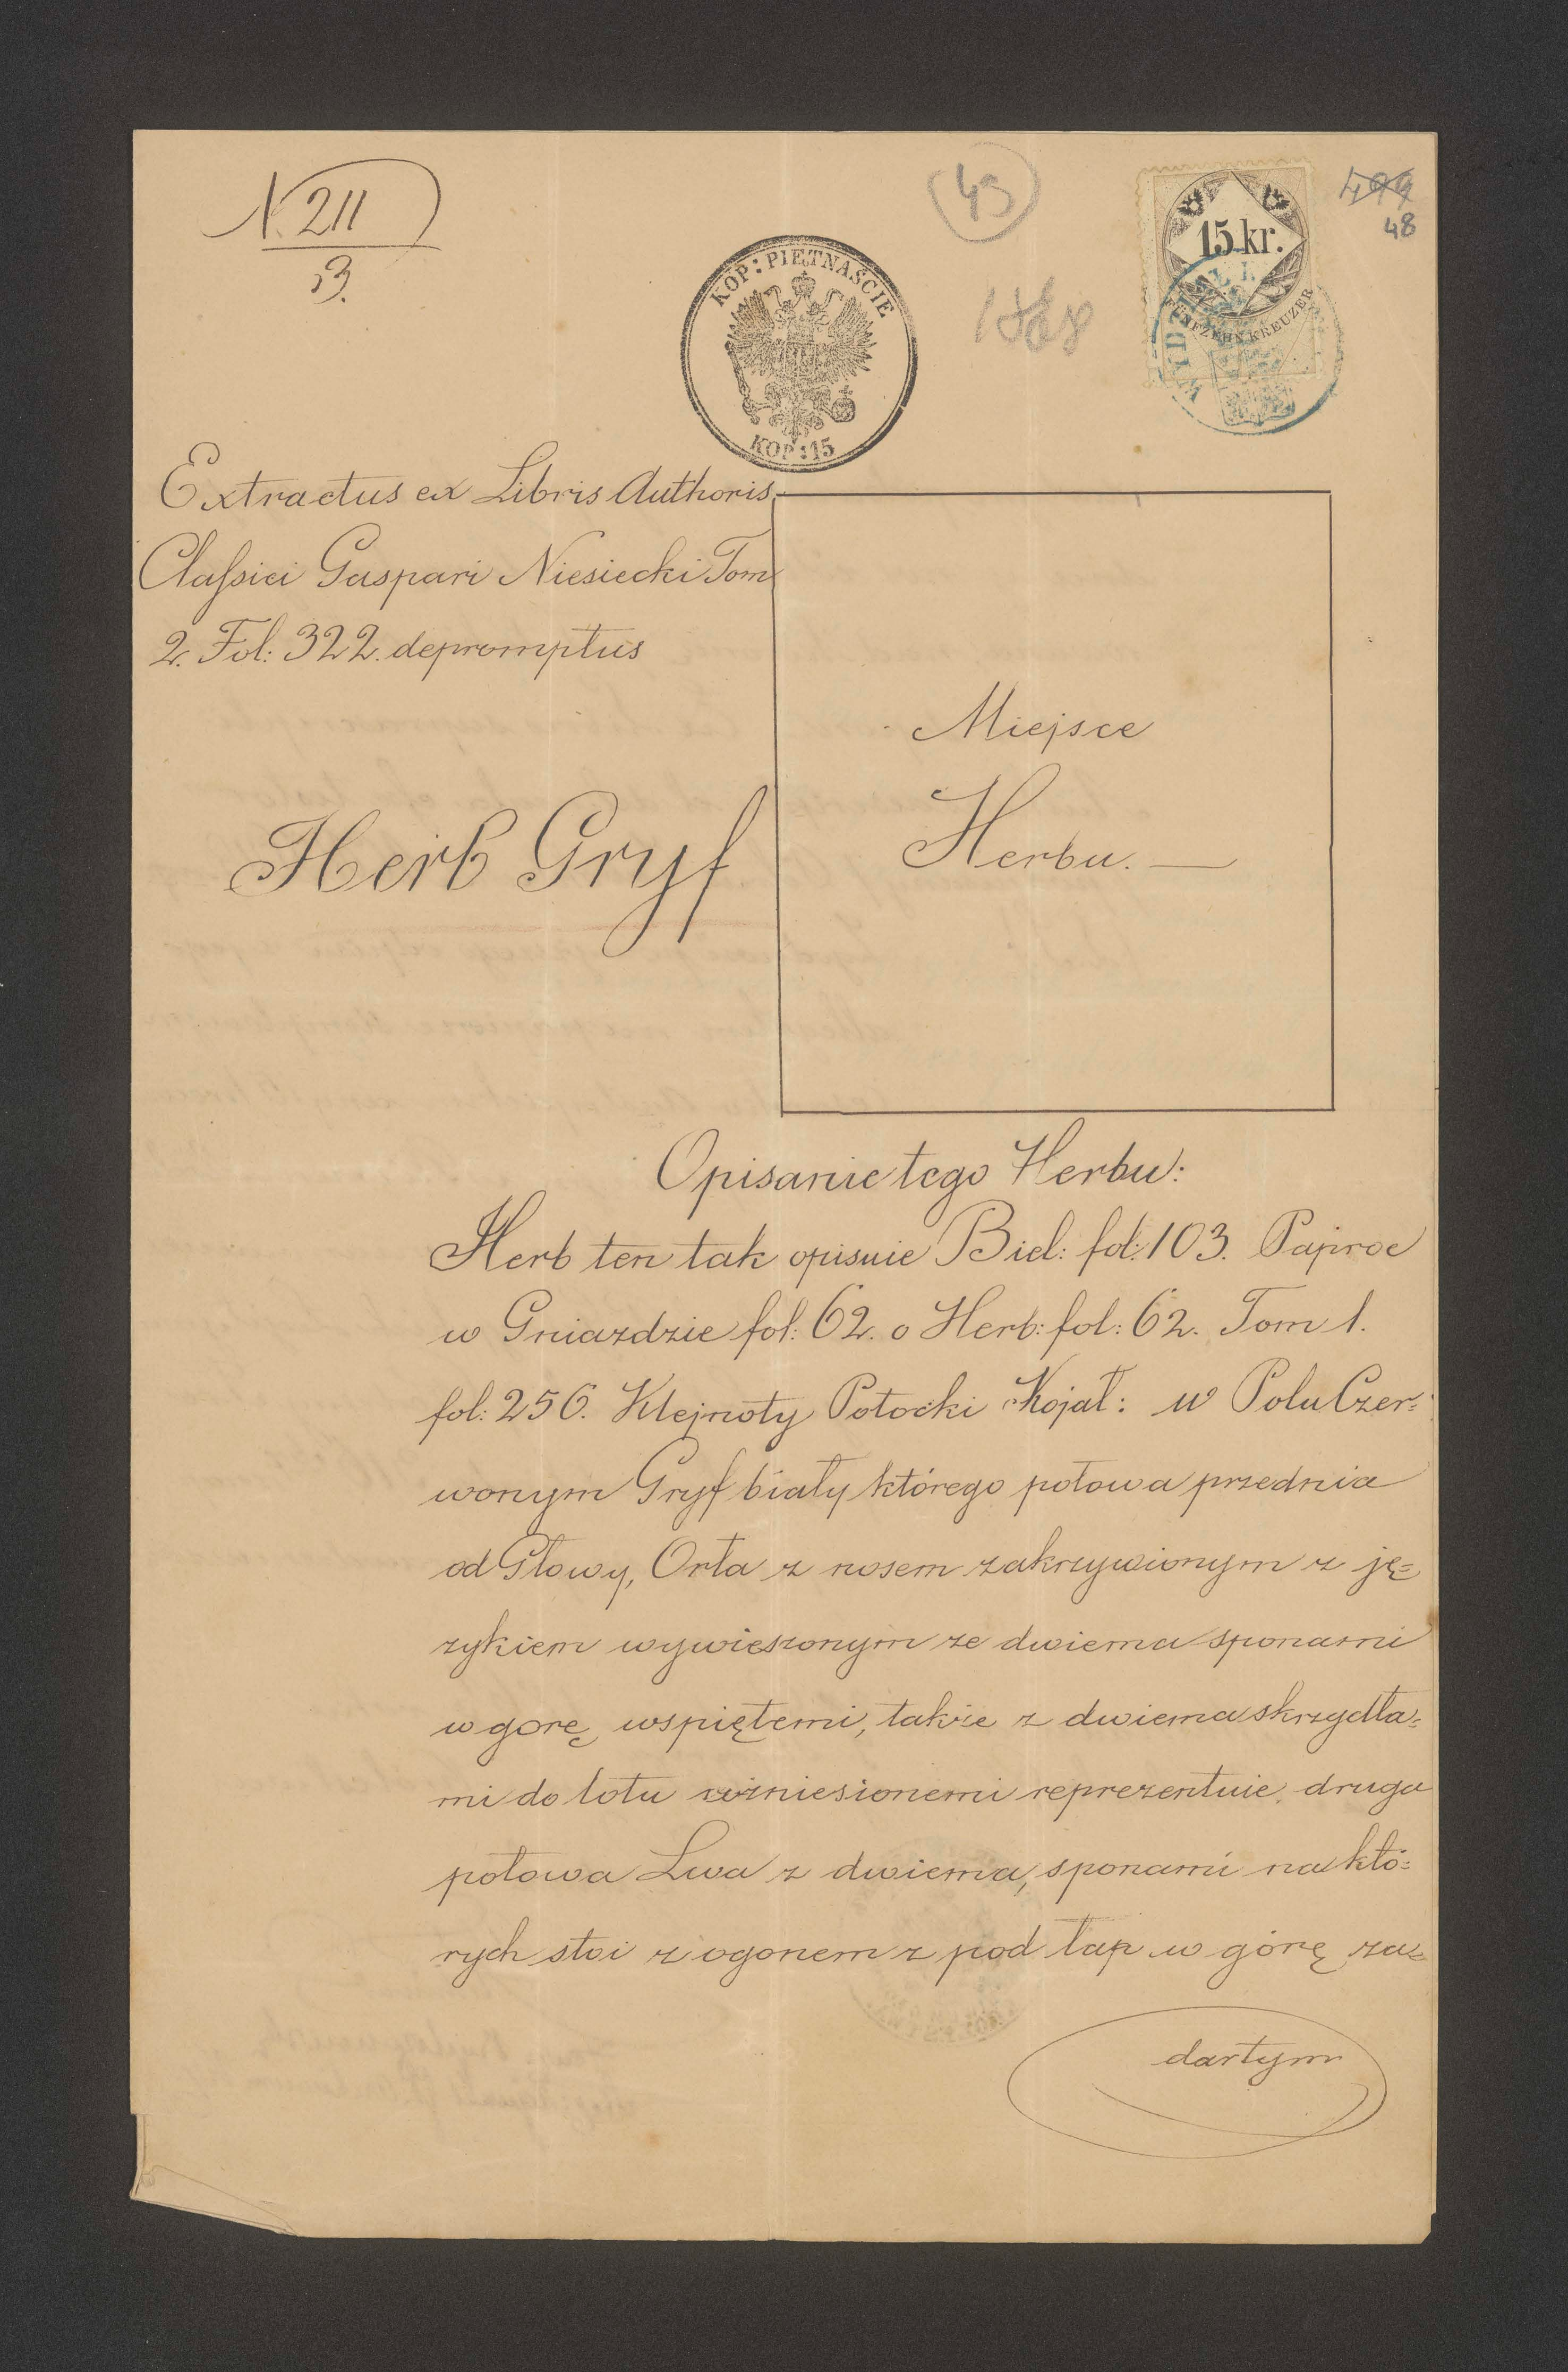 N. 211
B.
43
15 kr.
FÜNFZEHN KREUZER
499
48
KOP: PIĘTNAŚCIE
KOP: 15
Extractus ex Libris Authoris
Claſsici Gaspari Niesiecki Tom
2. Fol: 322. depromptus
Miejsce
Herbu. —
Herb Gryf
Opisanie tego Herbu:
Herb ten tak opisuie Biel: fol: 103. Paproc
w Gniazdzie fol: 62. o Herb: fol: 62. Tom 1.
fol: 256. Klejnoty Potocki Kojał: w Polu Czer=
wonym Gryf biały którego połowa przednia
od Głowy, Orła z nosem zakrzywionym z ję=
zykiem wywieszonym ze dwiema sponami
w gorę wspiętemi, także z dwiema skrzydła=
mi do lotu wzniesionemi reprezentuie, druga
połowa Lwa z dwiema, sponami na któ=
rych stoi z ogonem z pod łap w górę za=
dartym